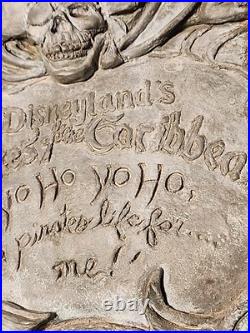 Disneyland's
es of the Caribbea
YO HO YO HO,
a pirates life for...
me!!